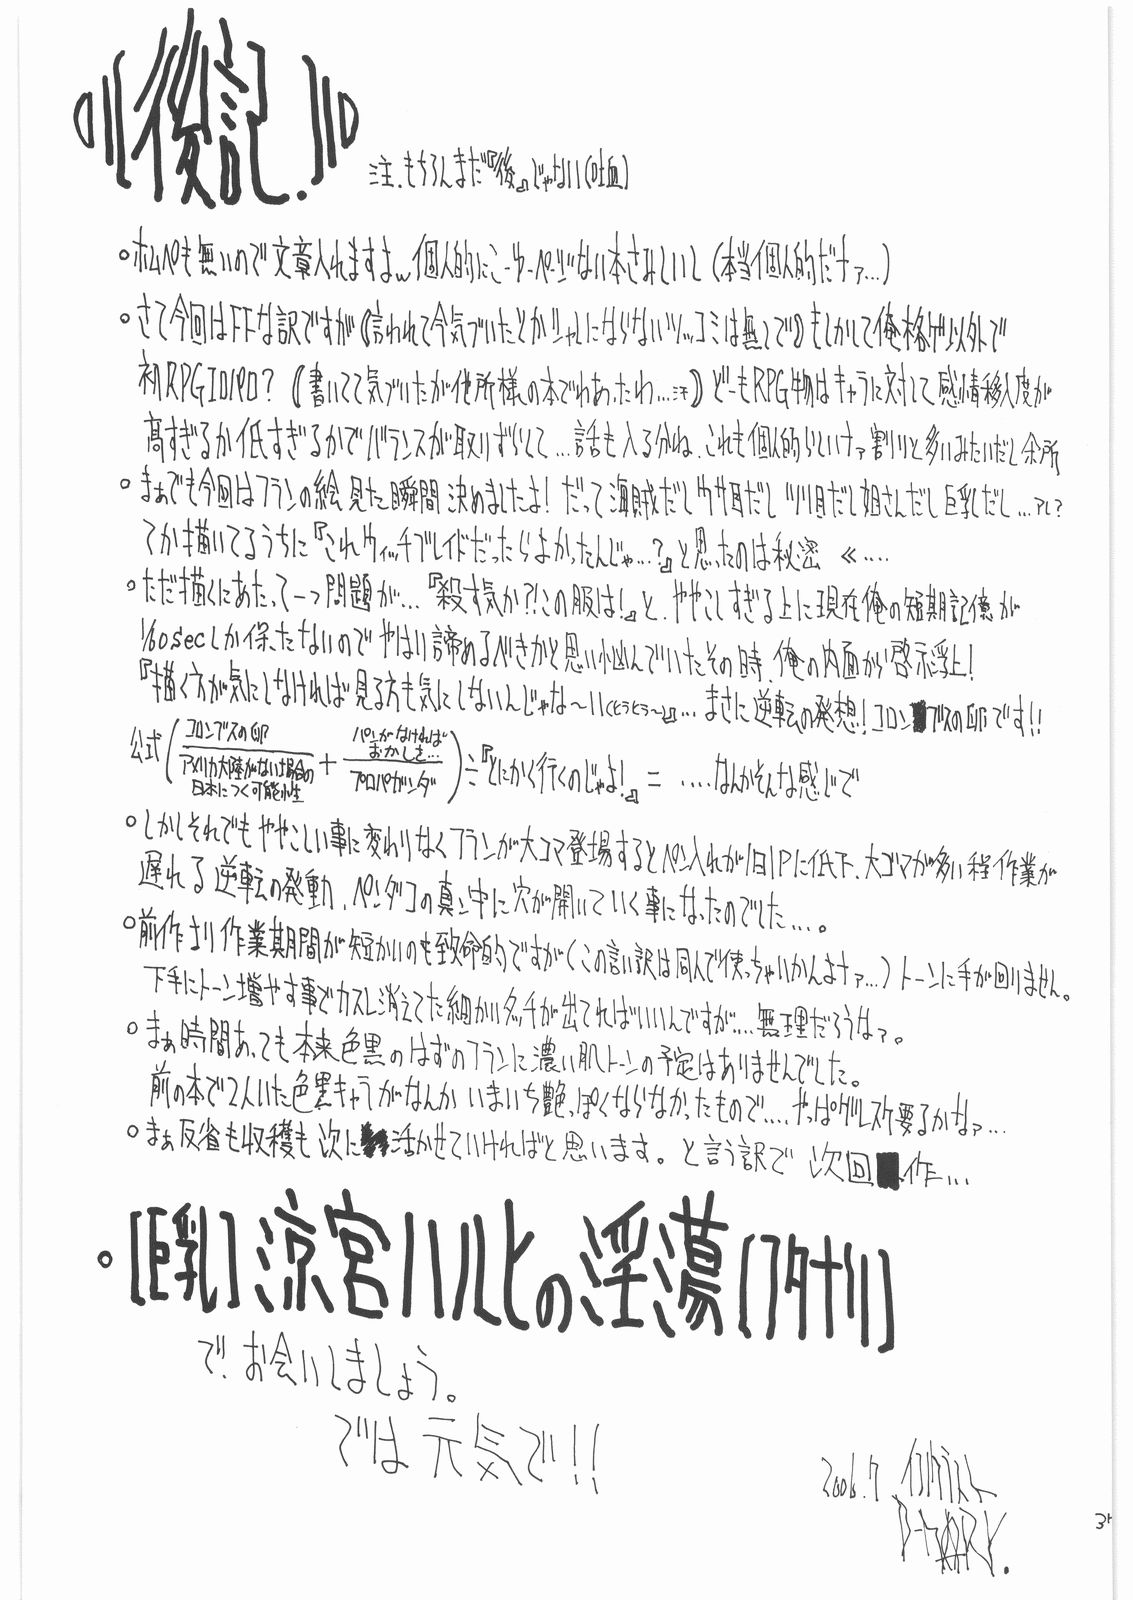 後記.
注.もちろんまだ『後』じゃない(吐血)
ホムペも無いので文章入れますよ〜個人的にこーゆーページない本さみしいし(本当個人的だナァ…)
さて今回はFFな訳ですが《言われて今気づいたとかシャレにならないツッコミは無しで》もしかして俺格ゲ以外で
初RPGエロパロ?《書いてて気づいたが他所様の本でわあったわ…汗》どーもRPG物はキャラに対して感情移入度が
高すぎるか低すぎるかでバランスが取りずらくて…話も入る分ね、これも個人的らしいナァ割りと多いみたいだし余所
まぁでも今回はフランの絵見た瞬間決めましたよ!だって海賊だしウサ耳だしツリ目だし姐さんだし巨乳だし…アレ?
てか描いてるうちに『これウィッチブレイドだったらよかったんじゃ…?』と思ったのは秘密《….
ただ描くにあたって一つ問題が…『殺す気か?!この服は!』と、ややこしすぎる上に現在俺の短期記憶が
1/60secしか保たないのでやはり諦めるべきかと思い悩んでいたその時、俺の内面から啓示浮上!
『描く方が気にしなければ見る方も気にしないんじゃな〜い(ヒラヒラ〜)』…まさに逆転の発想!コロンブスの卵です!!
公式(コロンブスの卵/アメリカ大陸がない場合の日本につく可能性+パンがなければおかしを…/プロパガンダ)÷『とにかく行くのじゃよ!』=….なんかそんな感じで
しかしそれでもややこしい事に変わりなくフランが大コマ登場するとペン入れが1日1Pに低下、大ゴマが多い程作業が
遅れる逆転の発動、ペンダコの真ン中に穴が開いていく事になったのでした….。
前作より作業期間が短かいのも致命的ですが(この言い訳は同人で使っちゃいかんよナァ…)トーンに手が回りません。
下手にトーン増やす事でカスレ消えてた細かいタッチが出てればいいんですが….無理だろうなァ。
まぁ時間あっても本来色黒のはずのフランに濃い肌トーンの予定はありませんでした。
前の本で2人いた色黒キャラがなんかいまいち艶っぽくならなかったもので….やっぱグレスケ要るかなァ…
まぁ反省も収穫も次に活かせていければと思います。と言う訳で次回作…
[巨乳]涼宮ハルヒの淫蕩[フタナリ]
で、お会いしましょう。
では元気で!!
2006.7